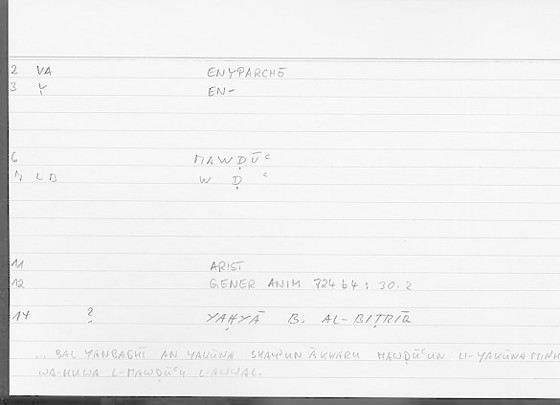 2 VA ENYPARCHĒ
3 Ṿ EN-
6 MAWḌŪᶜ
7 LB W Ḍ ᶜ
11 ARIST
12 GENER ANIM 724 b4 : 30.2
14 ? YAḤYĀ B. AL-BIṬRĪQ
... BAL YANBAGHĪ AN YAKŪNA SHAYʾUN ĀKHARU MAWḌŪᶜUN LI-YAKŪNA MINH
WA-HUWA L-MAWḌŪᶜU L-AWWAL.